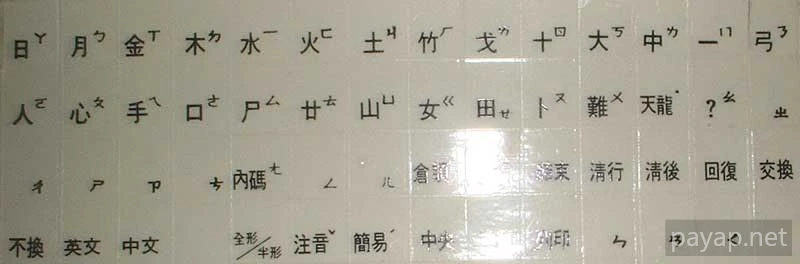 日ㄚ 月ㄅ 金ㄒ 木ㄌ 水ㄧ 火ㄈ 土ㄐ 竹ㄏ 戈ㄉ 十ㄖ 大ㄎ 中ㄌ 一ㄇ 弓ㄋ
人ㄛ 心ㄆ 手ㄟ 口ㄜ 尸ㄙ 廿ㄊ 山ㄩ 女ㄍ 田ㄝ 卜ㄡ 難ㄨ 天龍˙ ?ㄠ ㄓ
ㄔ ㄕ ㄗ ㄘ 內碼ㄤ ㄥ ㄦ 倉頡 束 清行 清後 回復 交換
不換 英文 中文 全形/半形 注音ˇ 簡易ˊ 中央 列印 ㄣ ㄢ ㄑ
payap.net